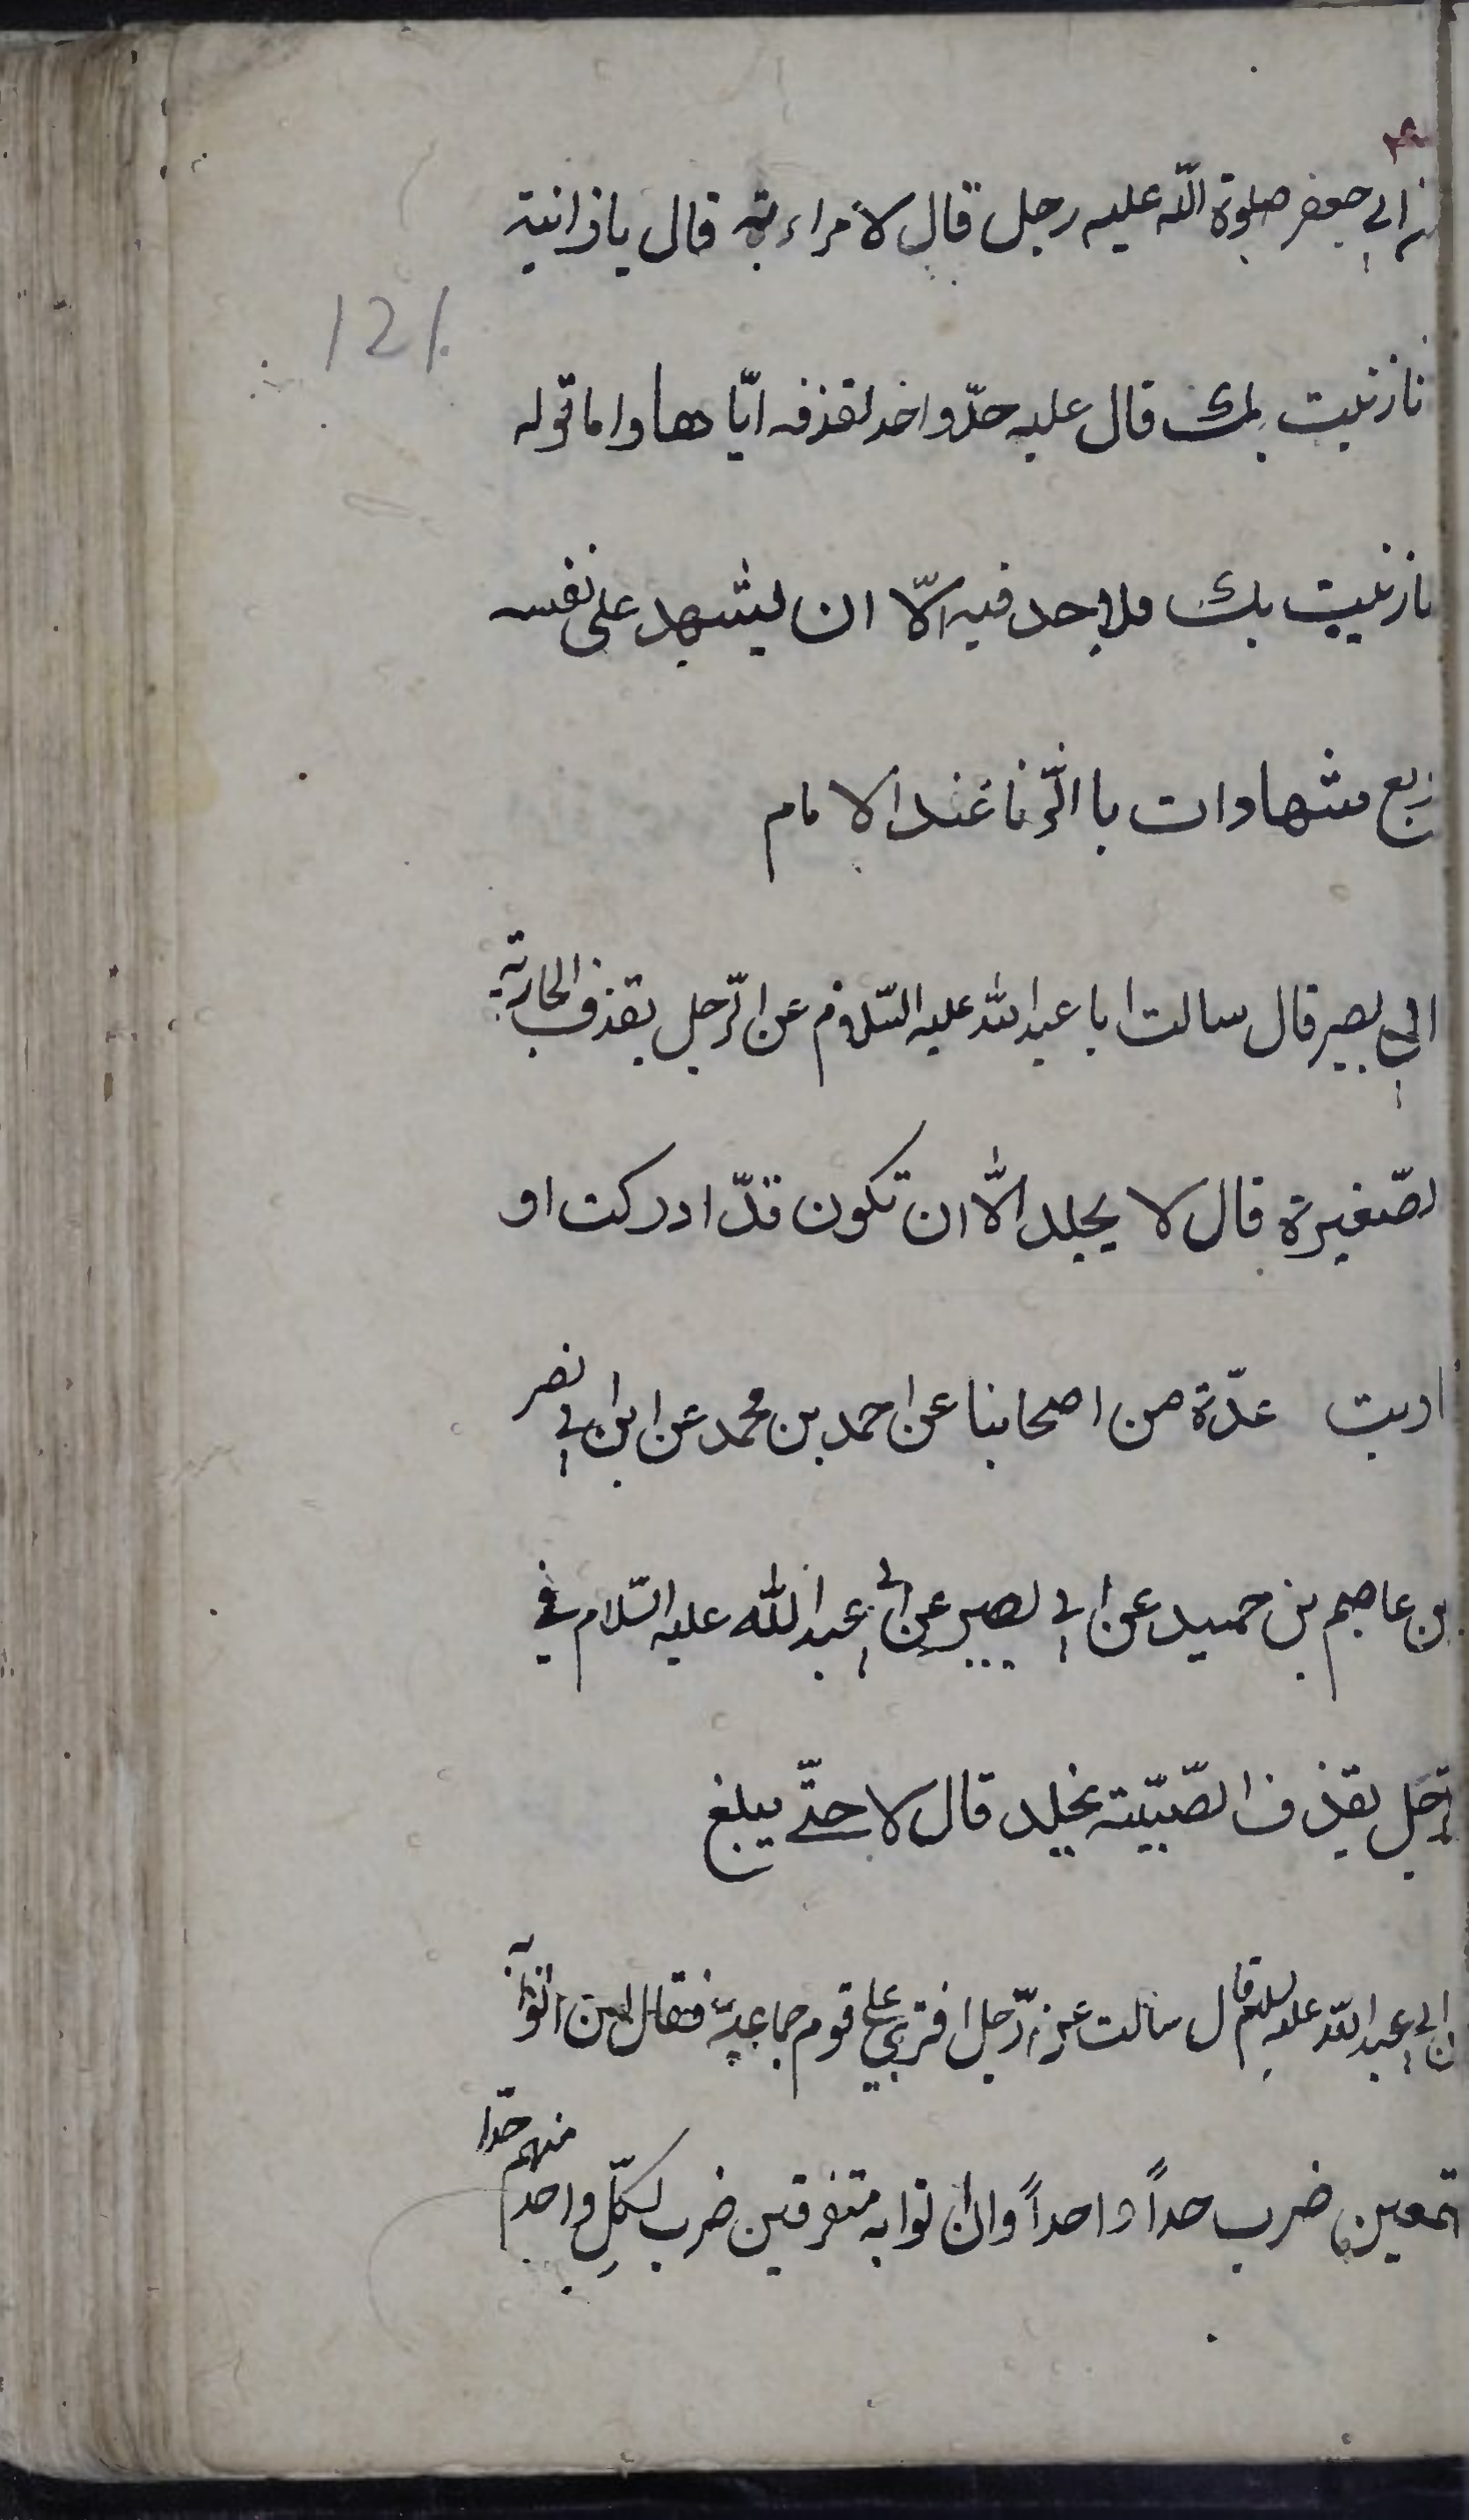 ابي جعفر صلوة اللّه عليه رجل قال لامراءته قال يا زانية
121
نازنيت بك قال عليه حدّ واحد لقذفه ايّاها واما قوله
نازنيت بك فلا حد فيه الّا ان يشهد على نفسه
ربع شهادات باالزّنا عند الامام
ابي بصير قال سالت ابا عبد الله عليه السّلام عن الرّجل يقذف الجارية
لصّغيرة قال لا يجلد الّا ان تكون قدّ ادركت او
اربت عدّة من اصحابنا عن احمد بن محمد عن ابن ابي نصر
بن عاصم بن حميد عن ابي بصير عن ابي عبد الله عليه السّلام في
رّجل يقذف الصّبيّة يجلد قال لا حتّى يبلغ
ن ابي عبد اللّه عليه السلام قال سالت عن رّجل افترى على قوم جماعة فقال ان اتوا به
تمعين ضرب حداً واحداً وان اتوا به متفرقين ضرب لكلّ واحد منهم حدّا